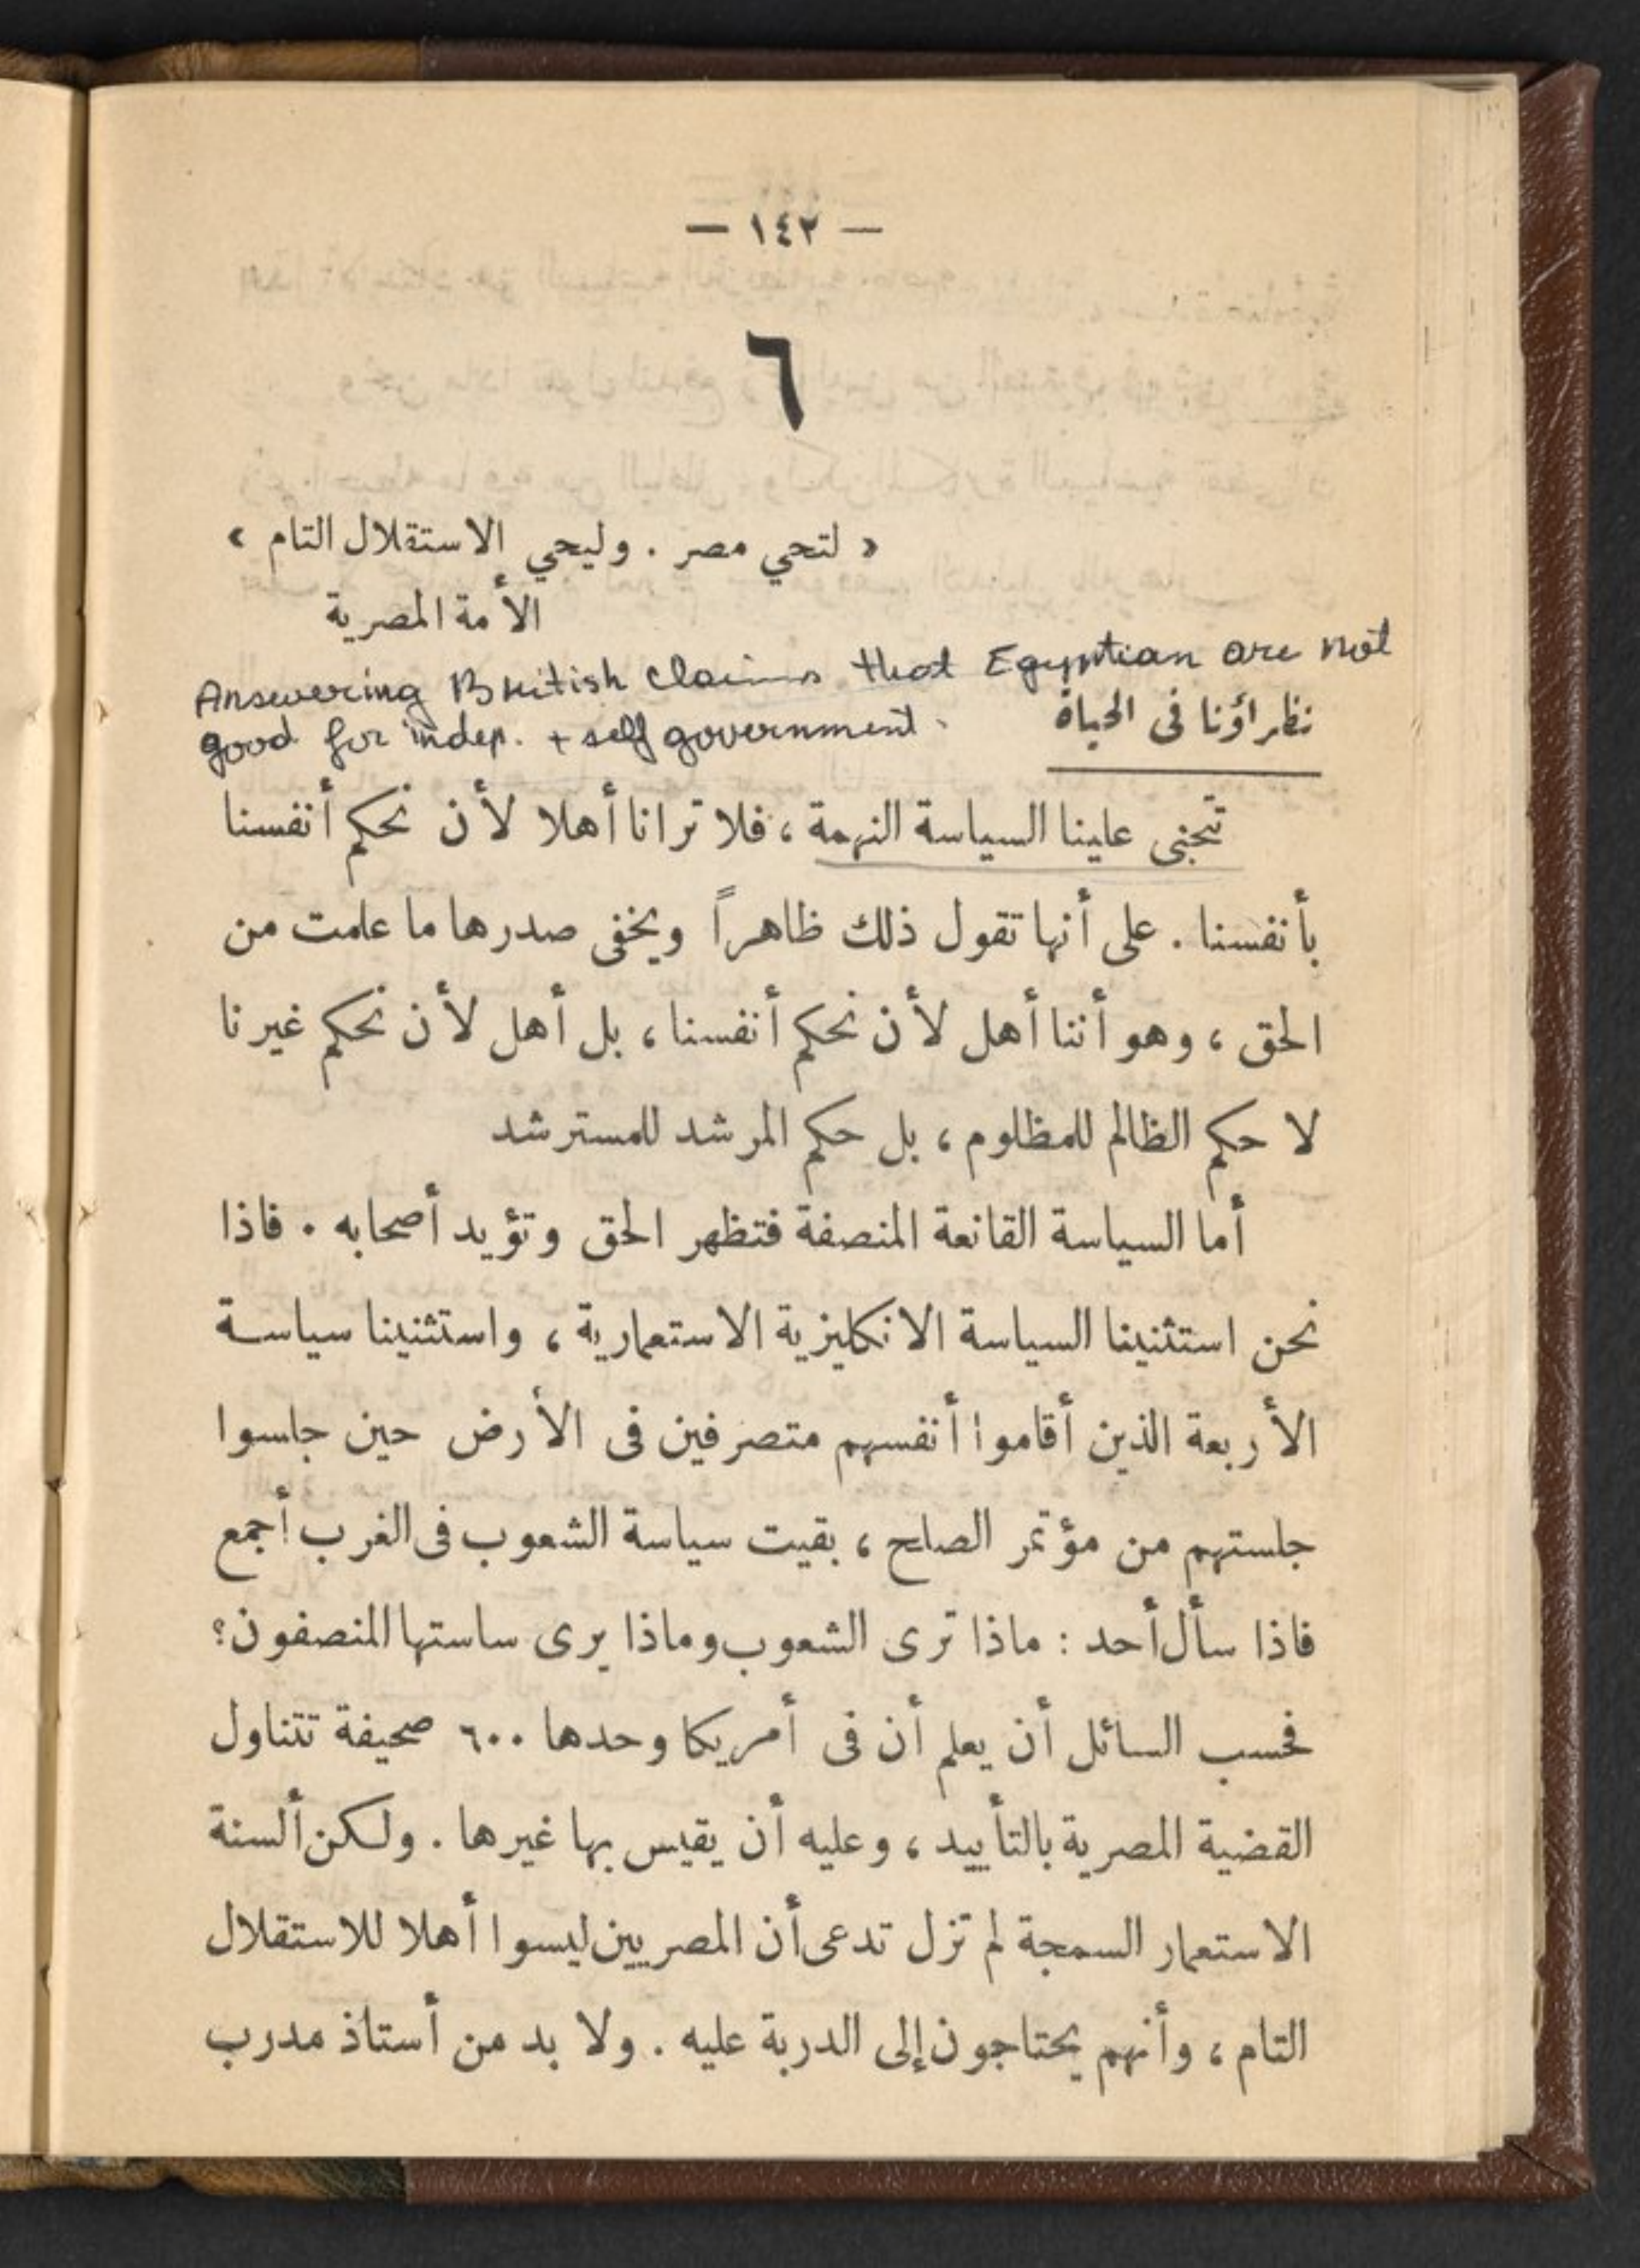 — ١٤٢ —
٦
« لتحي مصر . وليحي الاستقلال التام »
الأمة المصرية
Answering British claims that Egyptian are not
good for indep. + self government.
نظراؤنا فى الحياة
تتجنى علينا السياسة النهمة ، فلا ترانا أهلا لأن نحكم أنفسنا
بأنفسنا . على أنها تقول ذلك ظاهراً ويخفى صدرها ما علمت من
الحق ، وهو أننا أهل لأن نحكم أنفسنا ، بل أهل لأن نحكم غيرنا
لا حكم الظالم للمظلوم ، بل حكم المرشد للمسترشد
أما السياسة القانعة المنصفة فتظهر الحق وتؤيد أصحابه . فاذا
نحن استثنينا السياسة الانكليزية الاستعمارية ، واستثنينا سياسة
الأربعة الذين أقاموا أنفسهم متصرفين فى الأرض حين جلسوا
جلستهم من مؤتمر الصلح ، بقيت سياسة الشعوب فى الغرب أجمع
فاذا سأل أحد : ماذا ترى الشعوب وماذا يرى ساستها المنصفون؟
فحسب السائل أن يعلم أن فى أمريكا وحدها ٦٠٠ صحيفة تتناول
القضية المصرية بالتأييد ، وعليه أن يقيس بها غيرها . ولكن ألسنة
الاستعمار السمجة لم تزل تدعى أن المصريين ليسوا أهلا للاستقلال
التام ، وأنهم يحتاجون إلى الدربة عليه . ولا بد من أستاذ مدرب